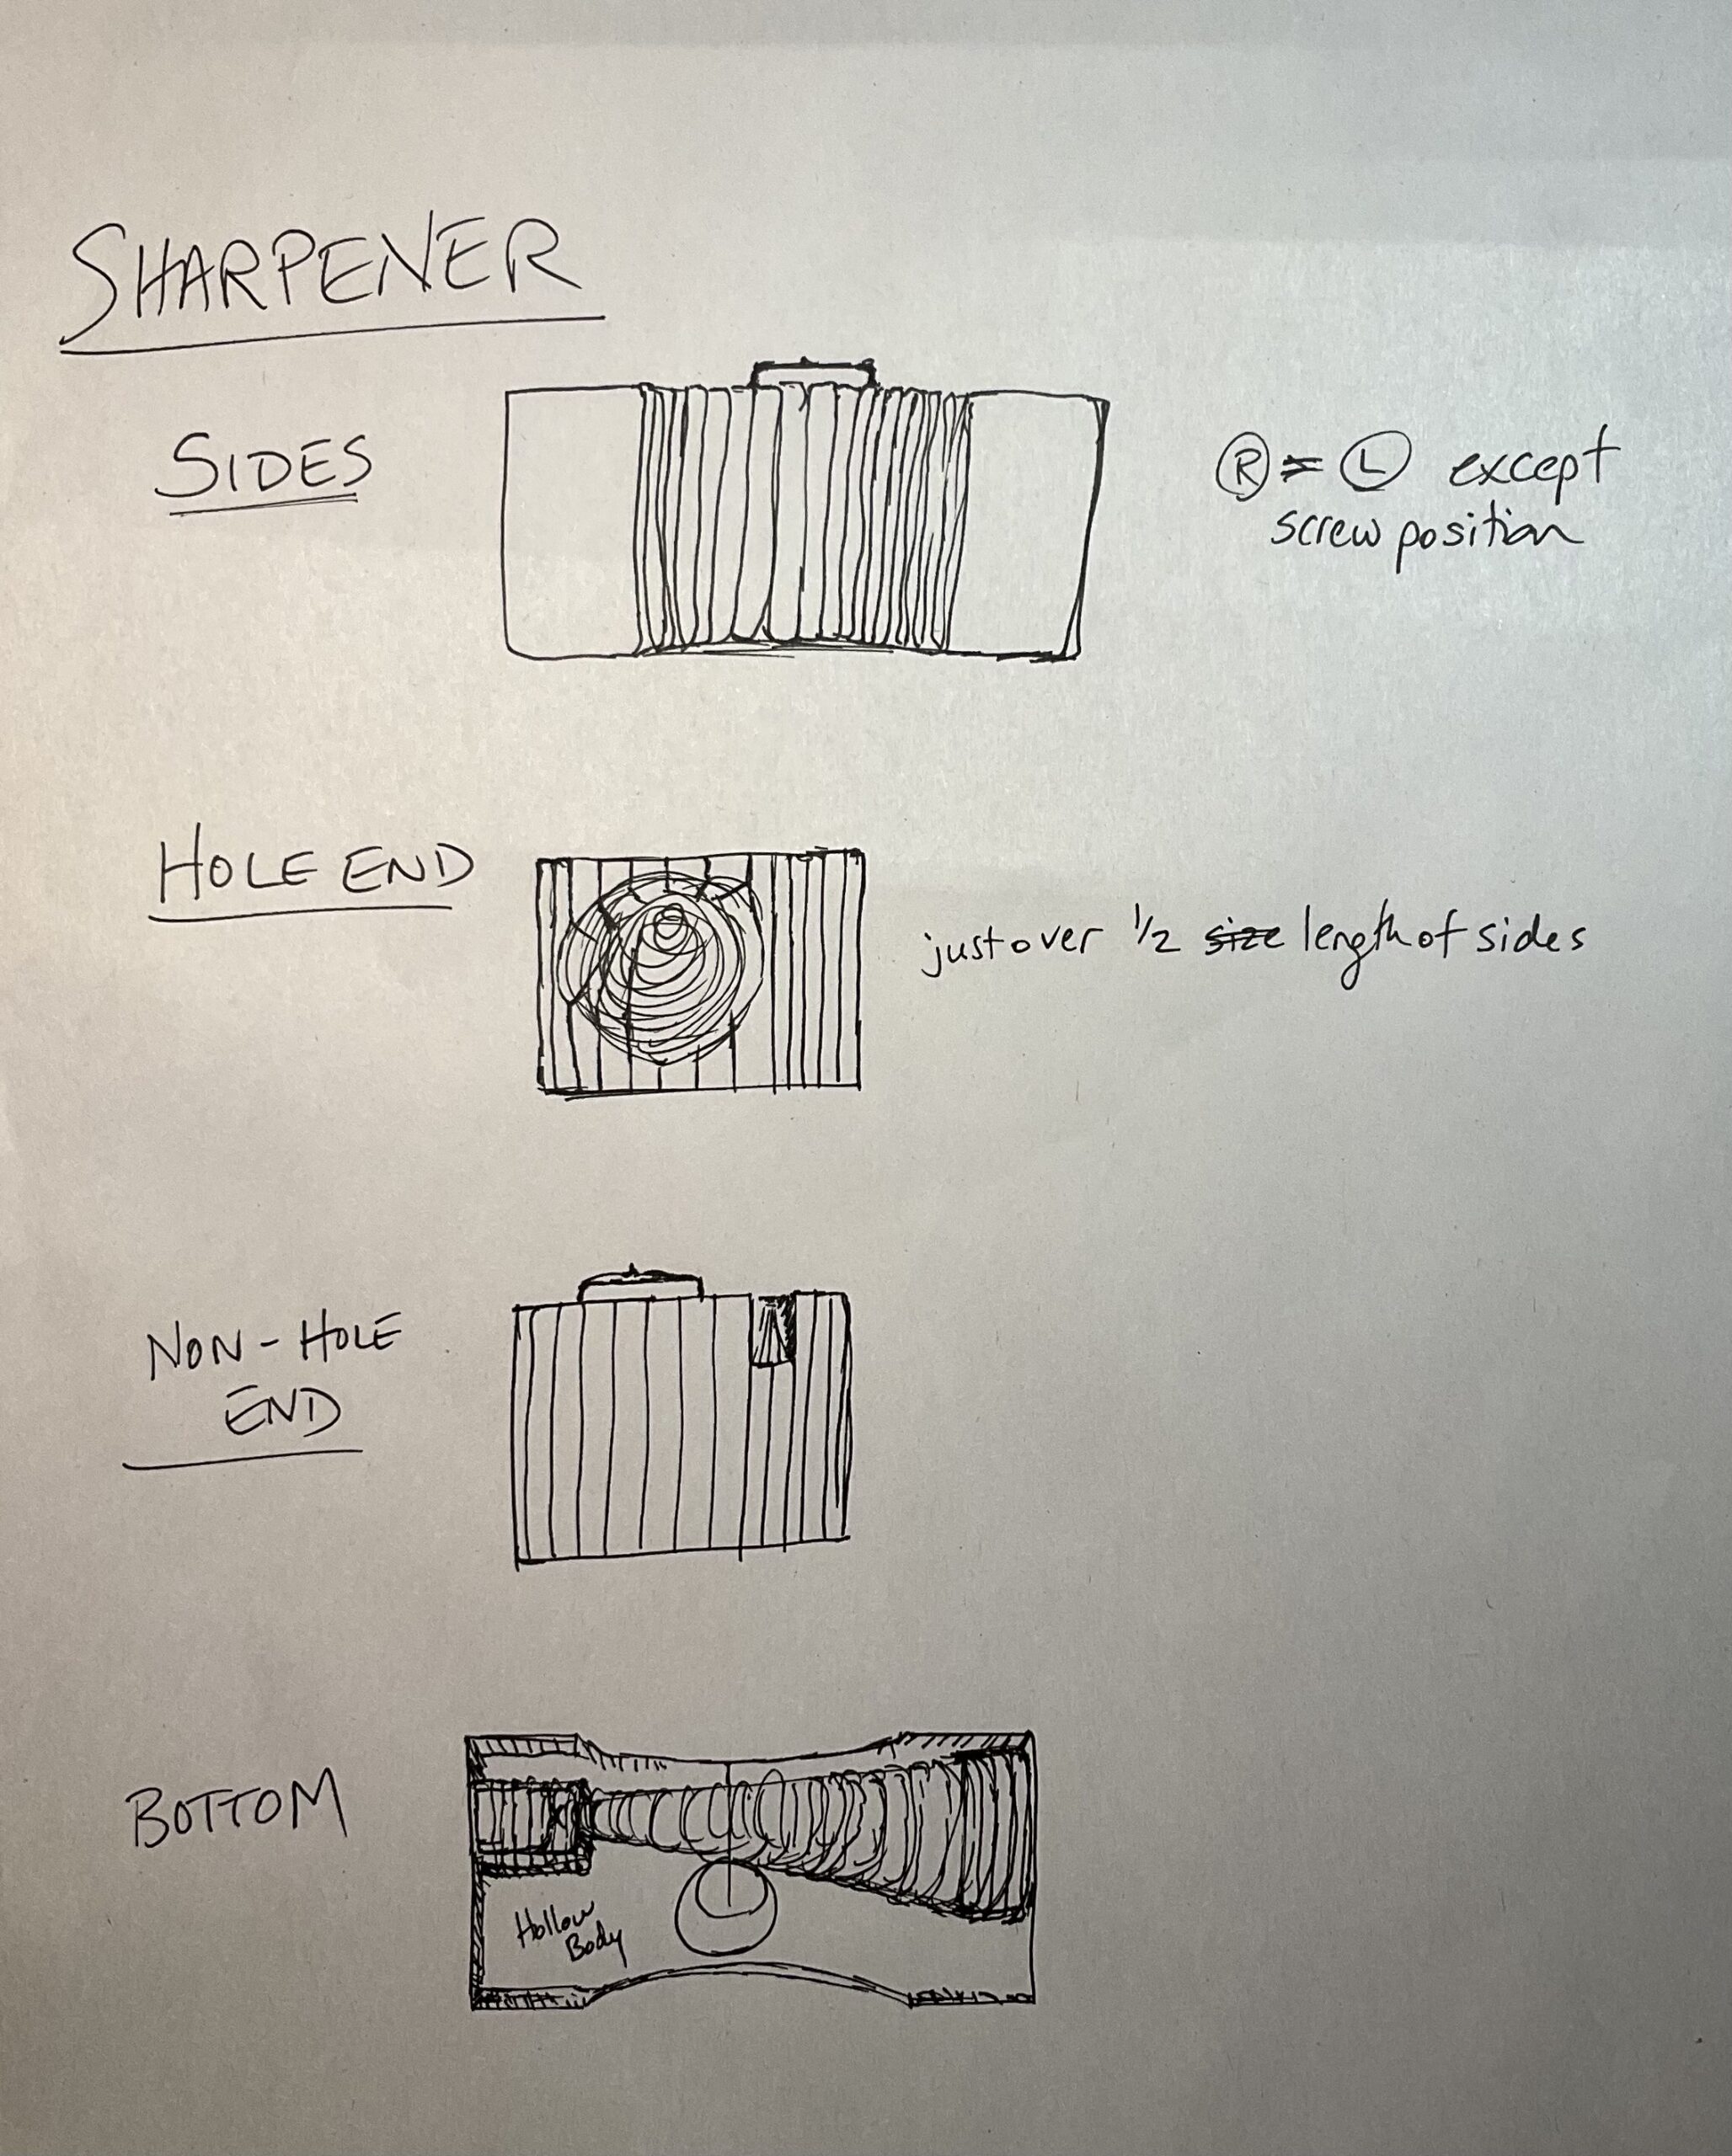 SHARPENER
SIDES
R = L except
screw position
HOLE END
just over 1/2 size length of sides
NON-HOLE
END
BOTTOM
Hollow
Body